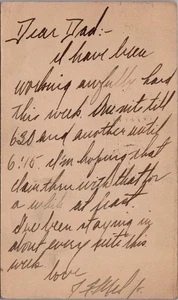 Dear Dad:-
I have been
working awfully hard
this week. One nite till
6:30 and another until
6:15. I'm hoping that
I'm thru with that for
a while at least.
I've been staying in
about every nite this
week
love